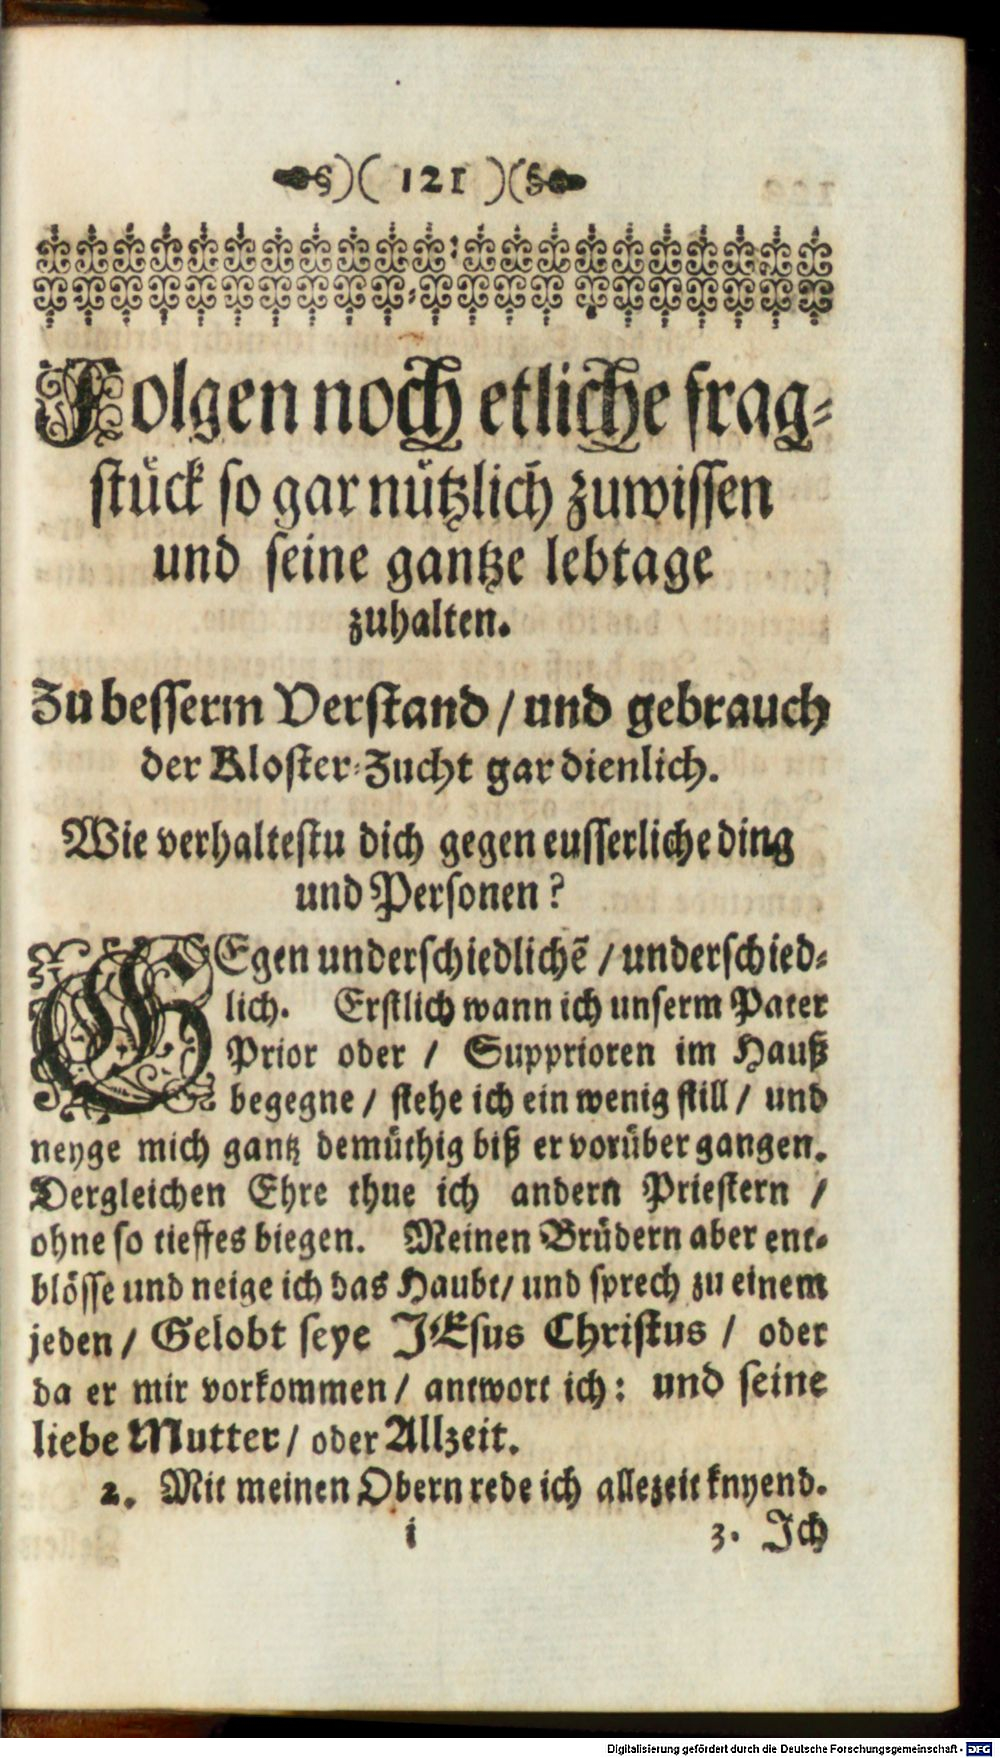 §)( 121 )(§
Folgen noch etliche frag⸗
stück so gar nützlich zuwissen
und seine gantze lebtage
zuhalten.
Zu besserm Verstand / und gebrauch
der Kloster⸗Zucht gar dienlich.
Wie verhaltestu dich gegen eusserliche ding
und Personen?
GEgen underschiedlichẽ / underschied⸗
lich. Erstlich wann ich unserm Pater
Prior oder / Supprioren im Hauß
begegne / stehe ich ein wenig still / und
neyge mich gantz demüthig biß er vorüber gangen.
Dergleichen Ehre thue ich andern Priestern /
ohne so tieffes biegen. Meinen Brüdern aber ent⸗
blösse und neige ich das Haubt / und sprech zu einem
jeden / Gelobt seye JEsus Christus / oder
da er mir vorkommen / antwort ich: und seine
liebe Mutter / oder Allzeit.
2. Mit meinen Obern rede ich allezeit knyend.
i 3. Ich
Digitalisierung gefördert durch die Deutsche Forschungsgemeinschaft - DFG